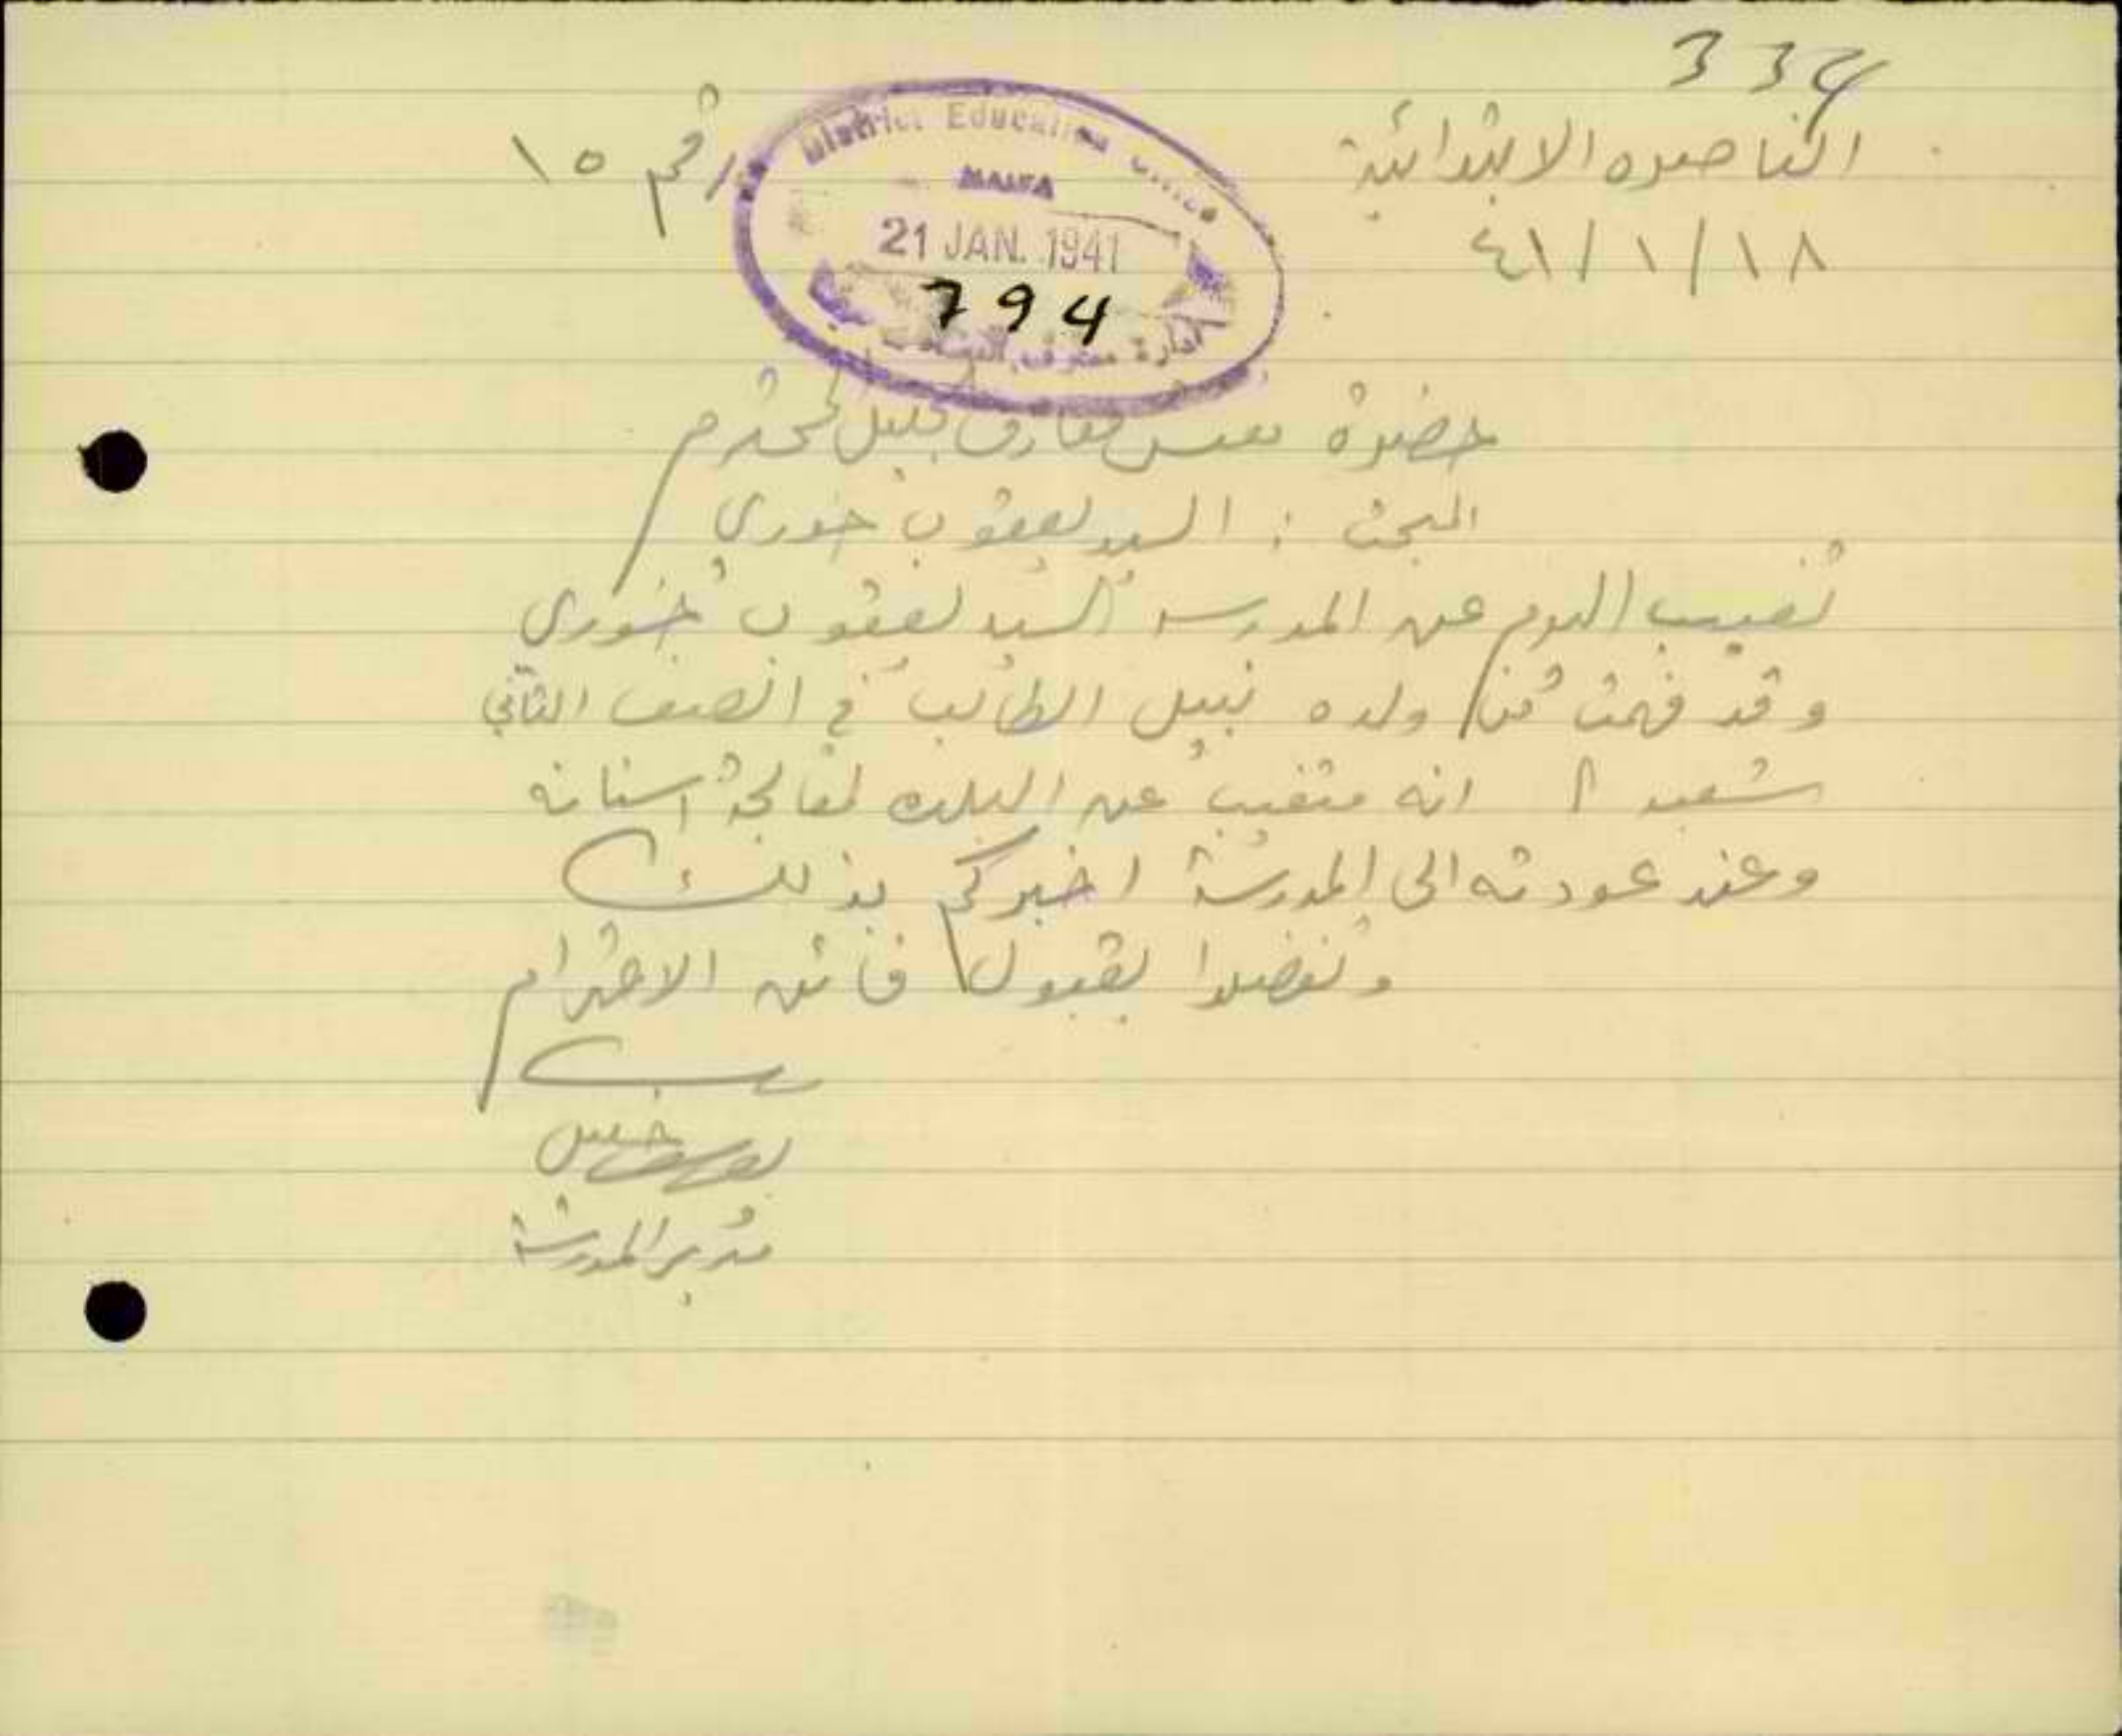 334
الناصره الابتدائية
رقم ١٥
١٨/١/٤١
District Education Office
HAIFA
21 JAN. 1941
794
ادارة معارف
حضرة مفتش معارف الجليل المحترم
المبحث : السيد يعقوب خوري
تغيب اليوم عن المدرسه السيد يعقوب خوري
وقد فهمت من ولده نبيل الطالب في الصف الثاني
شعبه أ انه متغيب عن البلده لمعالجة اسنانه
وعند عودته الى المدرسة اخبركم بذلك
وتفضلوا بقبول فائق الاحترام
خليل
مدير المدرسة